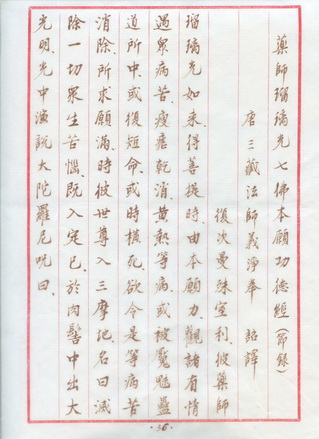 藥師瑠璃光七佛本願功德經(節錄)
唐三藏法師義淨奉 詔譯
復次曼殊室利彼藥師
瑠璃光如來得菩提時由本願力觀諸有情
遇衆病苦瘦瘧乾消黃熱等病或被魘魅蠱
道所中或復短命或時橫死欲令是等病苦
消除所求願滿時彼世尊入三摩地名曰滅
除一切衆生苦惱既入定已於肉髻中出大
光明光中演說大陀羅尼呪曰
·36·